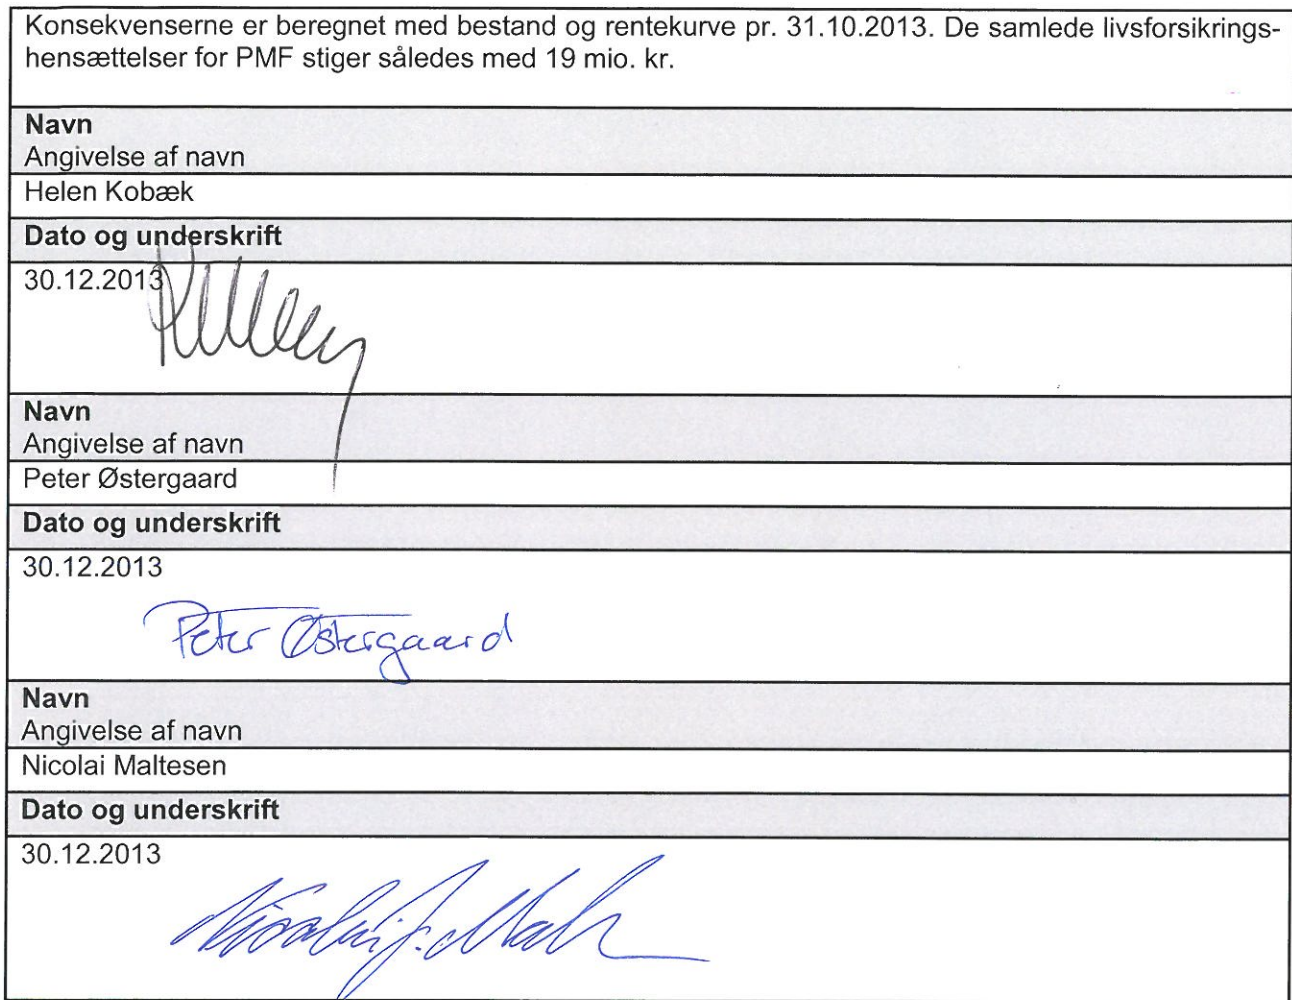 Konsekvenserne er beregnet med bestand og rentekurve pr. 31.10.2013. De samlede livsforsikrings-
hensættelser for PMF stiger således med 19 mio. kr.
Navn
Angivelse af navn
Helen Kobæk
Dato og underskrift
30.12.2013
Navn
Angivelse af navn
Peter Østergaard
Dato og underskrift
30.12.2013
Peter Østergaard
Navn
Angivelse af navn
Nicolai Maltesen
Dato og underskrift
30.12.2013